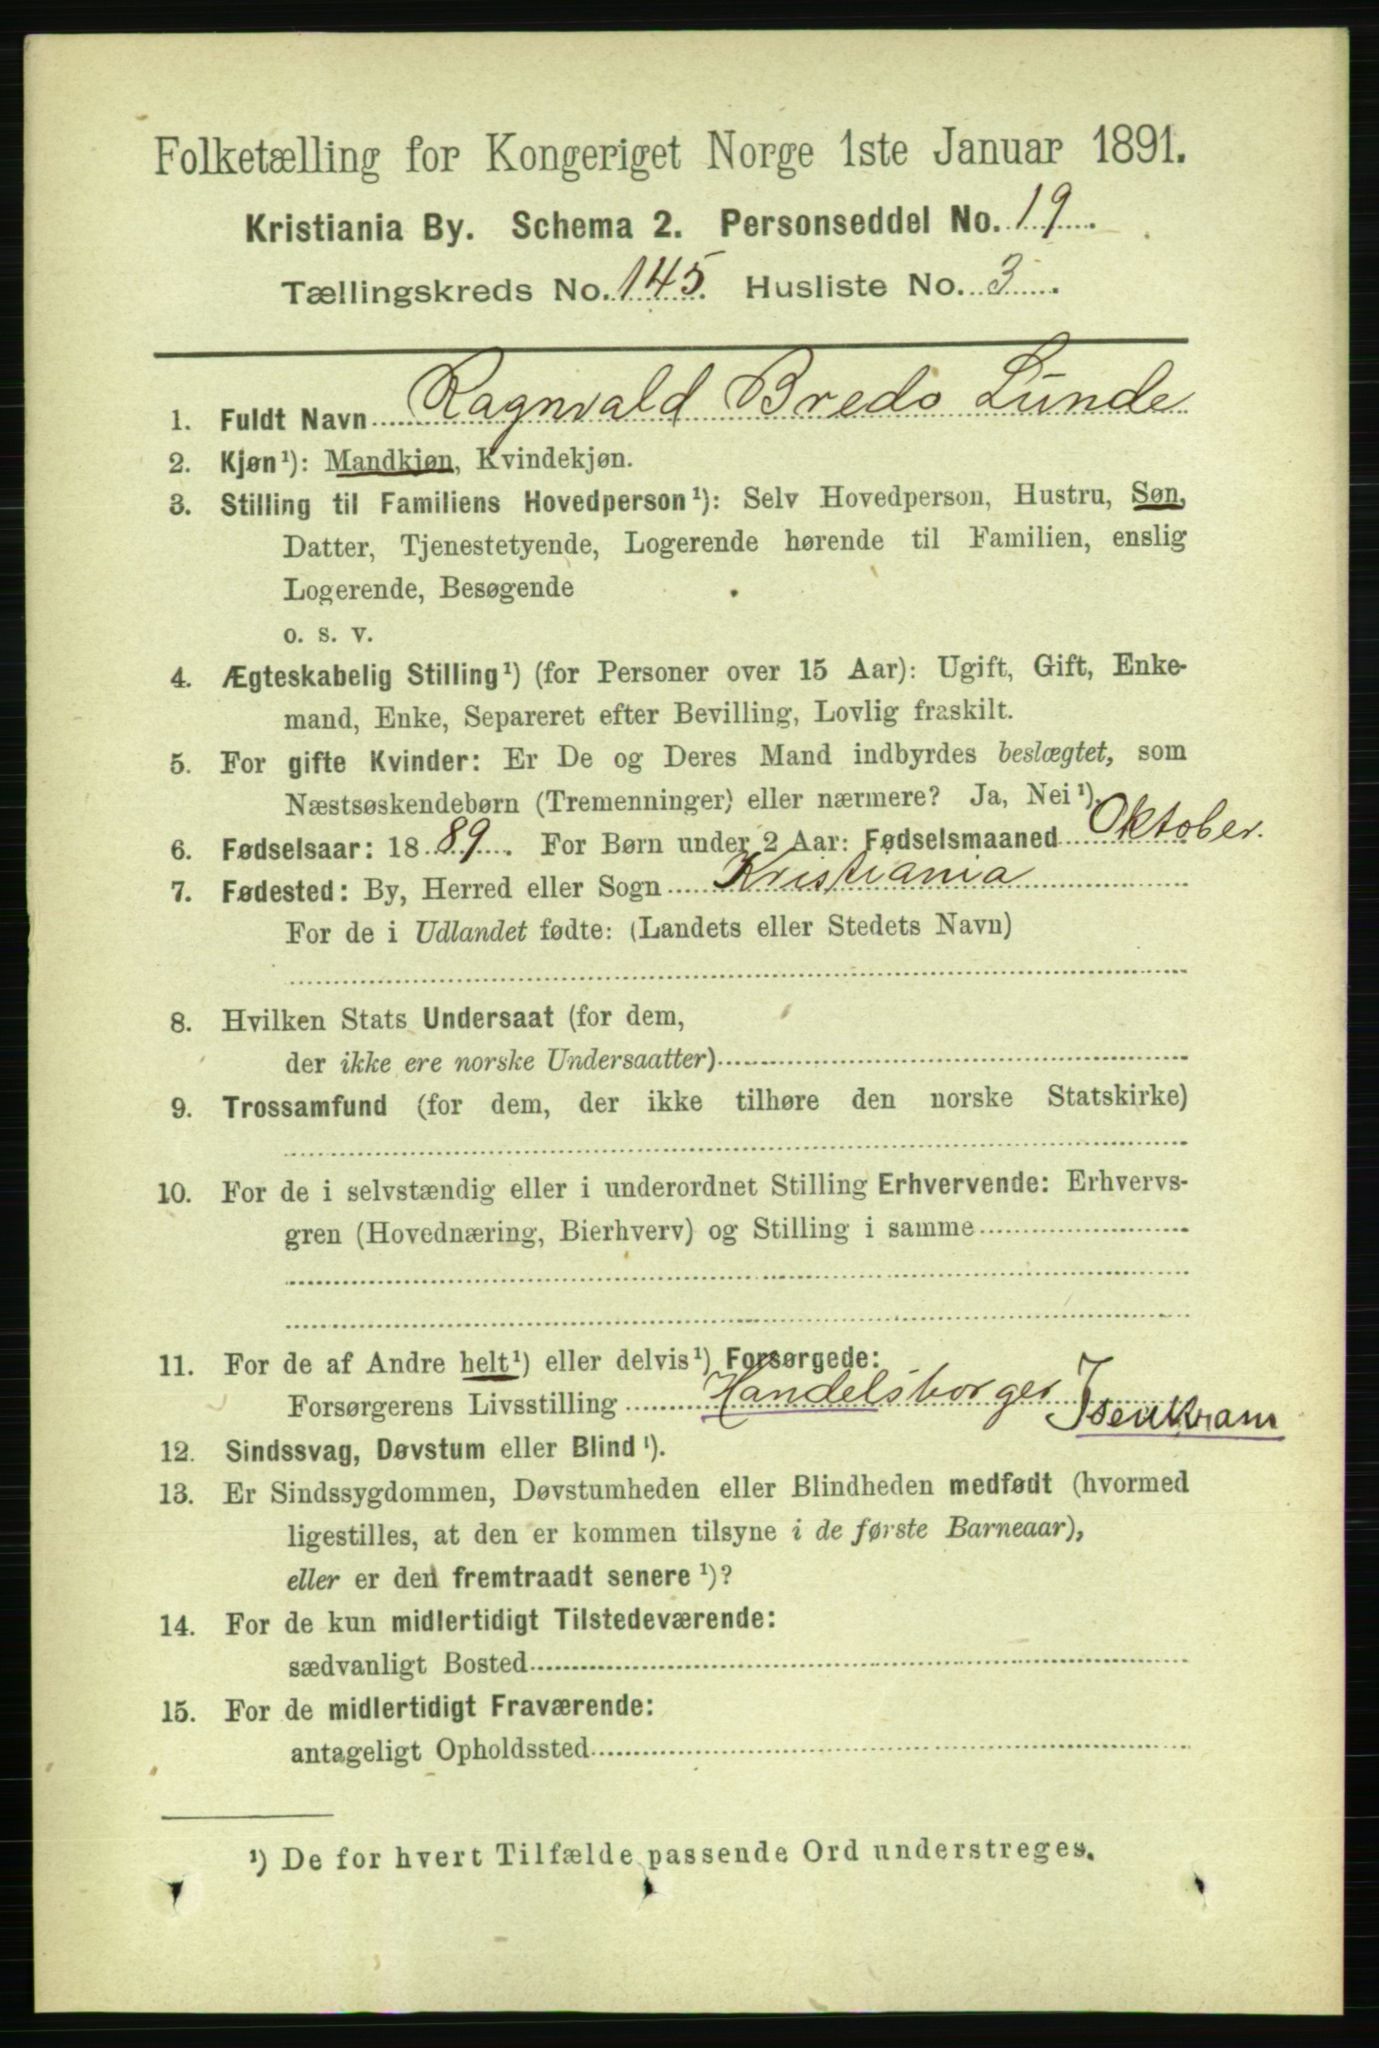 Folketælling for Kongeriget Norge 1ste Januar 1891.
Kristiania By. Schema 2. Personseddel No. 19.
Tællingskreds No. 145. Husliste No. 3.
1. Fuldt Navn Ragnvald Bredo Lunde
2. Kjøn¹): Mandkjøn, Kvindekjøn.
3. Stilling til Familiens Hovedperson¹): Selv Hovedperson, Hustru, Søn,
Datter, Tjenestetyende, Logerende hørende til Familien, enslig
Logerende, Besøgende
o. s. v.
4. Ægteskabelig Stilling¹) (for Personer over 15 Aar): Ugift, Gift, Enke-
mand, Enke, Separeret efter Bevilling, Lovlig fraskilt.
5. For gifte Kvinder: Er De og Deres Mand indbyrdes beslægtet, som
Næstsøskendebørn (Tremenninger) eller nærmere? Ja, Nei¹).
6. Fødselsaar: 1889. For Børn under 2 Aar: Fødselsmaaned Oktober.
7. Fødested: By, Herred eller Sogn Kristiania
For de i Udlandet fødte: (Landets eller Stedets Navn)
8. Hvilken Stats Undersaat (for dem,
der ikke ere norske Undersaatter)
9. Trossamfund (for dem, der ikke tilhøre den norske Statskirke)
10. For de i selvstændig eller i underordnet Stilling Erhvervende: Erhvervs-
gren (Hovednæring, Bierhverv) og Stilling i samme
11. For de af Andre helt¹) eller delvis¹) Forsørgede:
Forsørgerens Livsstilling Handelsborger Isenkram
12. Sindssvag, Døvstum eller Blind¹).
13. Er Sindssygdommen, Døvstumheden eller Blindheden medfødt (hvormed
ligestilles, at den er kommen tilsyne i de første Barneaar),
eller er den fremtraadt senere¹)?
14. For de kun midlertidigt Tilstedeværende:
sædvanligt Bosted
15. For de midlertidigt Fraværende:
antageligt Opholdssted
¹) De for hvert Tilfælde passende Ord understreges.